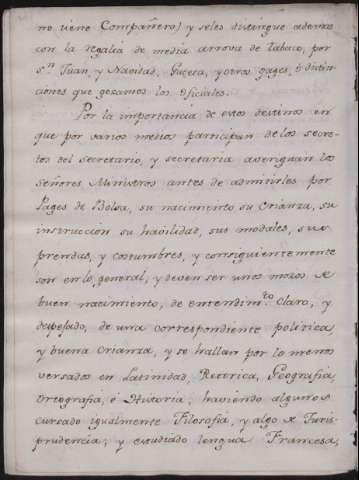 no tiene Compañero) y seles distingue ademas
con la regalia de media arrova de tabaco, por
Sn. Juan, y Navidad, Gazeta, y otros gages, è distin-
ciones que gozamos los Oficiales.
Por la importancia de estos destinos en
que por varios medios participan de los secre-
tos del secretario, y secretaria averiguan los
Señores Ministros antes de admitirles por
Pages de Bolsa, su nacimiento su Crianza, su
instruccion su havilidad, sus modales, sus
prendas, y costumbres, y consiguientemente
son en lo general, y deven ser unos mozos de
buen nacimiento, de entendimto. claro, y
despejado, de una correspondiente politica
y buena Crianza, y se hallan por lo menos
versados en Latinidad, Retorica, Geografia
Ortografia, è Historia; haviendo algunos
cursado igualmente Filosofia, y algo de Juris-
prudencia; y estudiado lengua Francesa,